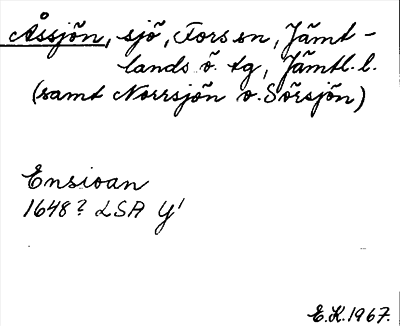 Åssjön, sjö, Fors sn, Jämt-
lands ö. tg, Jämtl. l.
(samt Norrsjön o. Sörsjön)
Ensioan
1648? LSA Y¹
E.K. 1967.